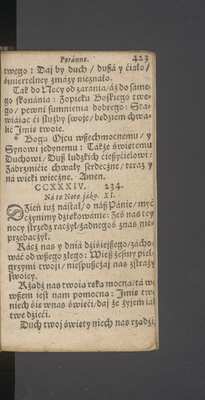 Poránne. 423
twego: Daj by duch / dußá y ciáło /
śmiertelney zmázy nieználo.
Ták do Nocy od zárania / áż do sáme-
go skonánia: Z opieku Boskiego twe-
go / pewni sumnienia dobrego: Sta-
wiáiąc ći służby swoje / będziem chwa-
lić Jmię twoie.
* Bogu Oycu wßechmocnemu / y
Synowi jedynemu: Tákże świętemu
Duchowi / Duß ludzkich ćießyćielowi:
Zábrzmićie chwały serdeczne / teraz y
ná wieki wieczne. Amen.
CCXXXIV. 234.
Ná tę Notę jáko. XI.
DZień iuż nástał / o náß Pánie / my ć
czynimy dziękowánie: Żeś nas tey
nocy strzedz raczył / żadnegoś z nas nie-
przebaczył.
Rácz nas y dniá dźiśieyßego / zácho-
wáć od wßego złego: Wießżeśmy piel-
grzymi twoi / niespußczay nas z straży
swoiey.
Rządź nas twoiá ręká mocna / tá we
wßem iest nam pomocna: Jmię twe
niech śię w nas świeći / day że żyiem iák
twe dźieći.
Duch twoy święty niech nas rządźi,